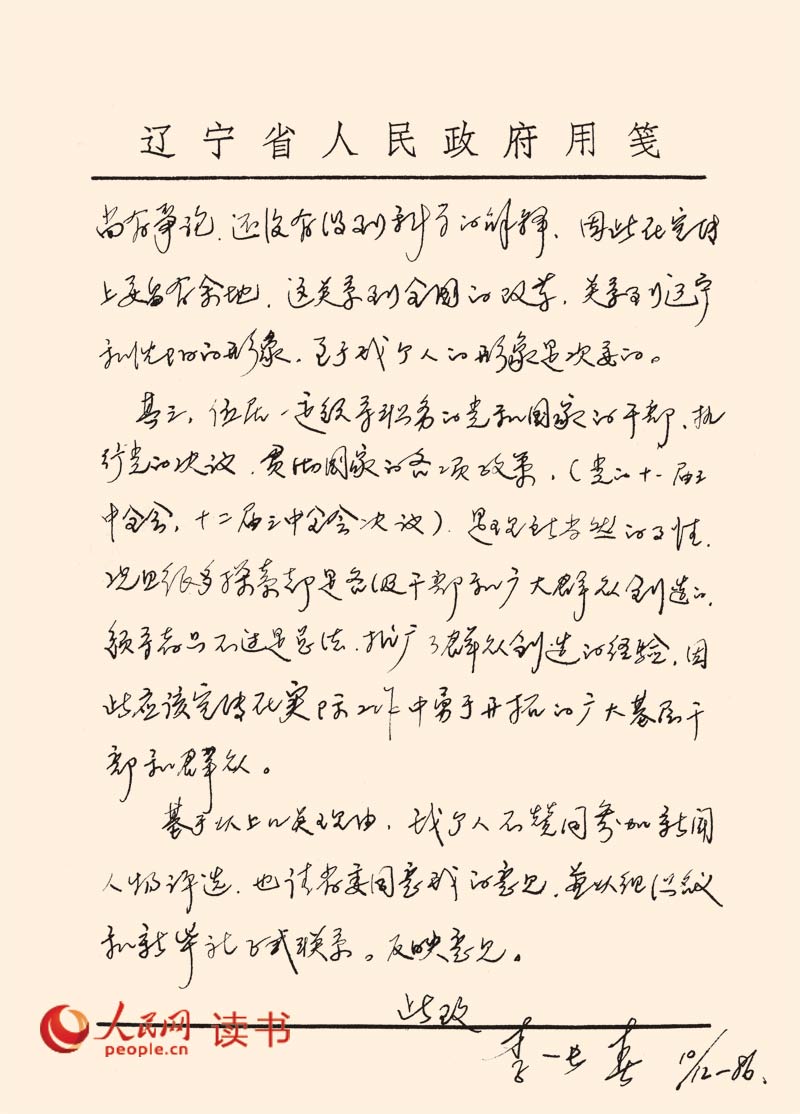 辽宁省人民政府用笺
尚有争论，还没有得到科学的解释，因此在宣传
上要留有余地，这关系到全国的改革，关系到辽宁
和沈阳的形象，至于我个人的形象是次要的。
其三，作为一定领导职务的党和国家的干部，执
行党的决议，贯彻国家的各项改革，（党的十一届三
中全会，十二届三中全会决议）是理所当然的
况且很多探索都是各级干部和广大群众创造的，
领导者只不过是总结、推广了群众创造的经验，因
此应该宣传在实际工作中勇于开拓的广大基层干
部和群众。
基于以上几点理由，我个人不赞同参加新闻
人物评选，也请省委同意我的意见，并以组织名义
和新华社正式联系。反映意见。
此致
李长春 10/12-86.
人民网 读书
people.cn